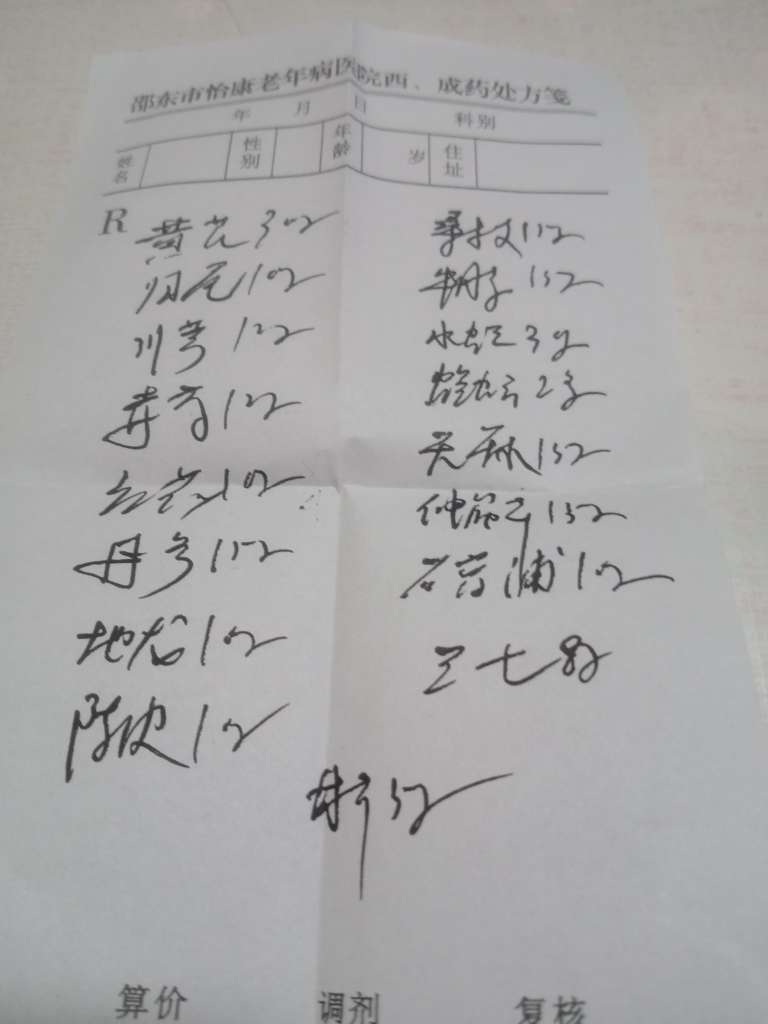 邵东市怡康老年病医院西、成药处方笺
年 月 日 科别
姓名 性别 年龄 岁 住址
R
黄芪30g
归尾10g
川芎12g
赤芍12g
红花10g
丹参15g
地龙10g
陈皮10g
桑枝15g
水蛭3g
蜈蚣2条
天麻15g
伸筋草15g
石菖蒲10g
三七8g
甘草5g
算价 调剂 复核